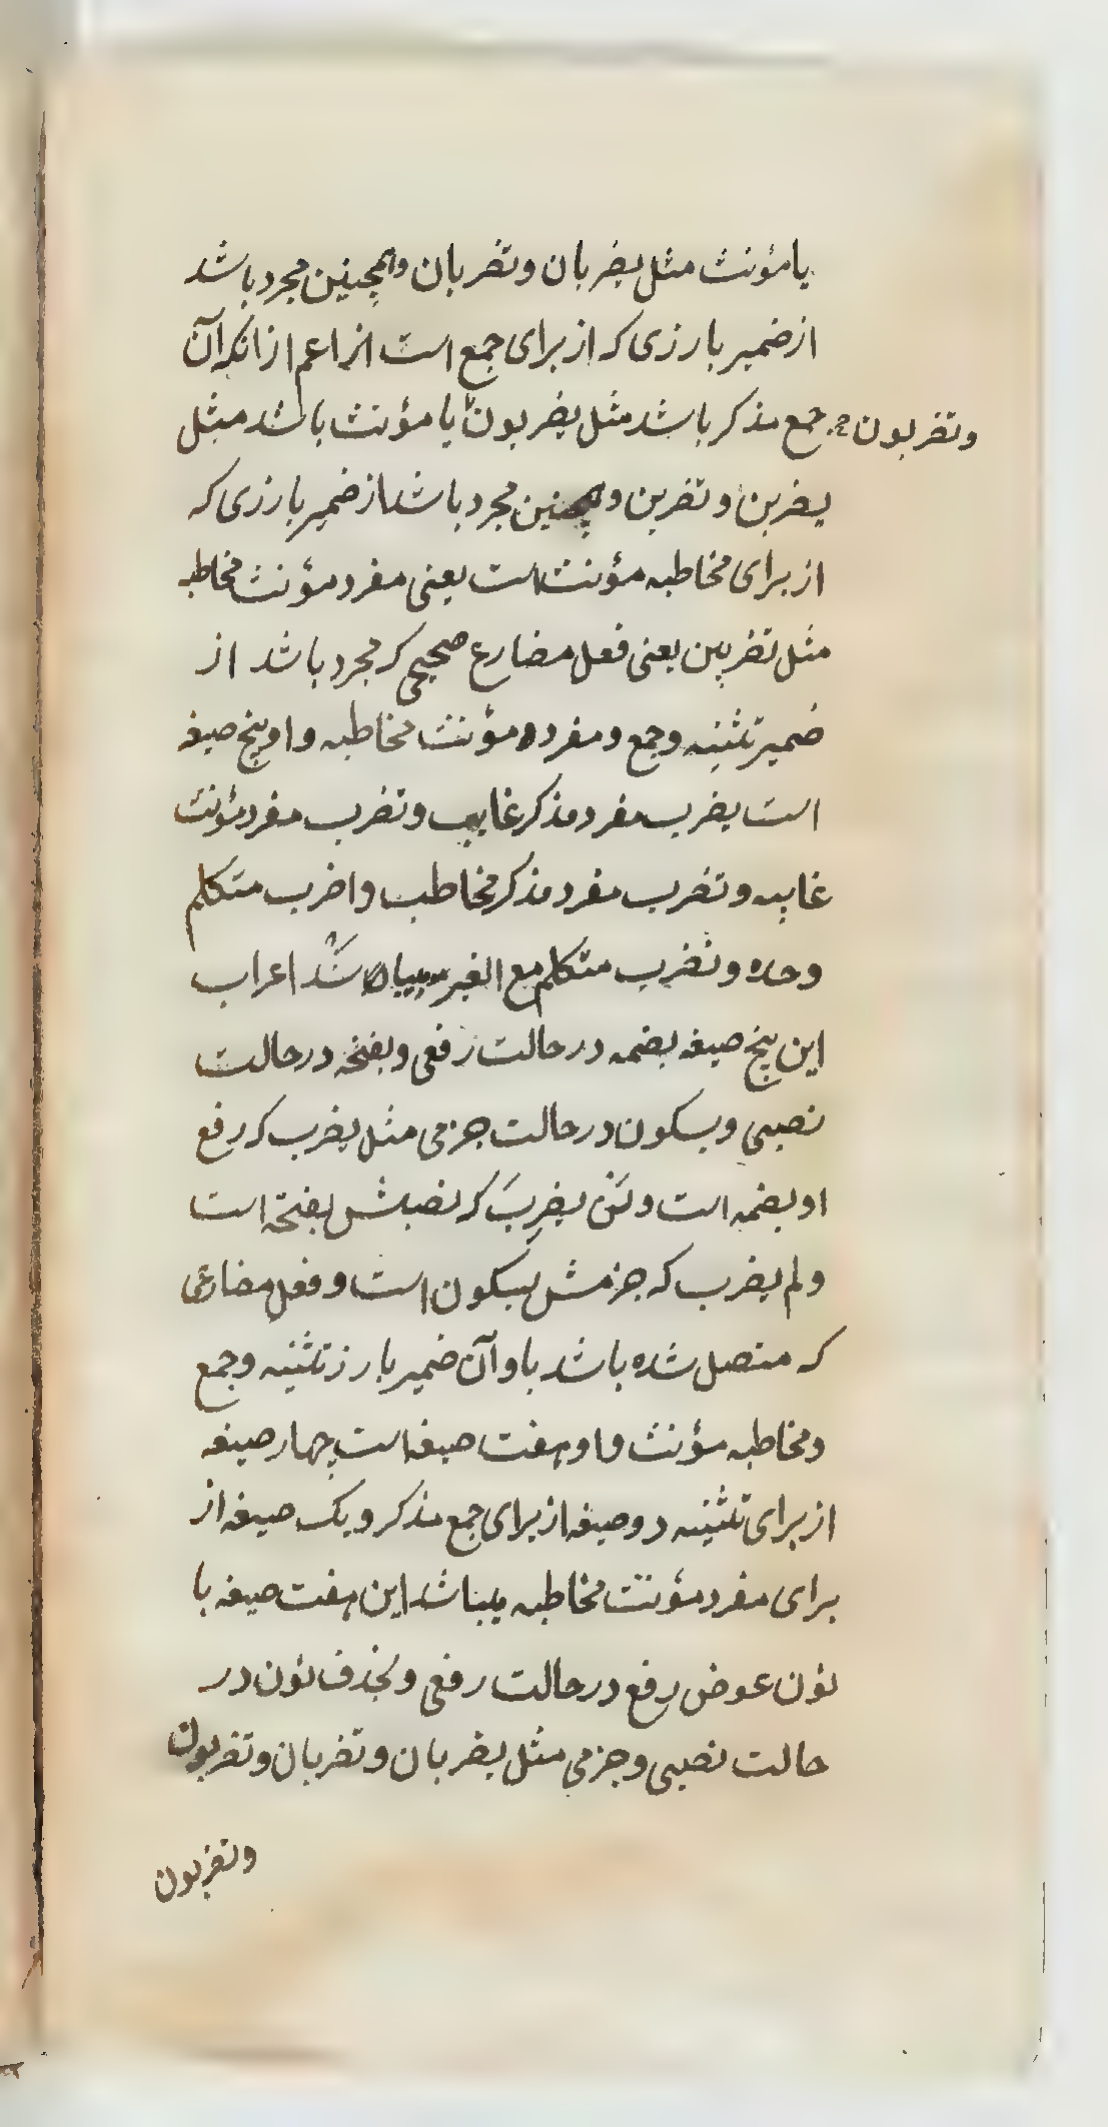 یا مؤنث مثل یضربان و تضربان و همچنین مجرد باشد
از ضمیر بارزی که از برای جمع است اعم از انکه آن
جمع مذکر باشد مثل یضربون یا مؤنث باشد مثل
و تضربون
یضربن و تضربن و همچنین مجرد باشد از ضمیر بارزی که
از برای مخاطبه مؤنث است یعنی مفرد مؤنث مخاطبه
مثل تضربین یعنی فعل مضارع صحیحی که مجرد باشد از
ضمیر تثنیه و جمع و مفرده مؤنث مخاطبه و او پنج صیغه
است یضرب مفرد مذکر غایب و تضرب مفرد مؤنث
غایبه و تضرب مفرد مذکر مخاطب و اضرب متکلم
وحده و نضرب متکلم مع الغیر اعراب
این پنج صیغه بضمه در حالت رفعی و بفتحه در حالت
نصبی و بسکون در حالت جزمی مثل یضرب که رفع
او بضمه است و لَنْ یضرِبَ که نصبش بفتحة است
و لم یضرب که جزمش بسکون است و فعل مضارعی
که متصل شده باشد باو آن ضمیر بارز تثنیه و جمع
و مخاطبه مؤنث و او هفت صیغه است چهار صیغه
از برای تثنیه دو صیغه از برای جمع مذکر و یک صیغه از
برای مفرد مؤنث مخاطبه میباشد این هفت صیغه با
نون عوض رفع در حالت رفعی و بحذف نون در
حالت نصبی و جزمی مثل یضربان و تضربان و تضربون
و تضربون